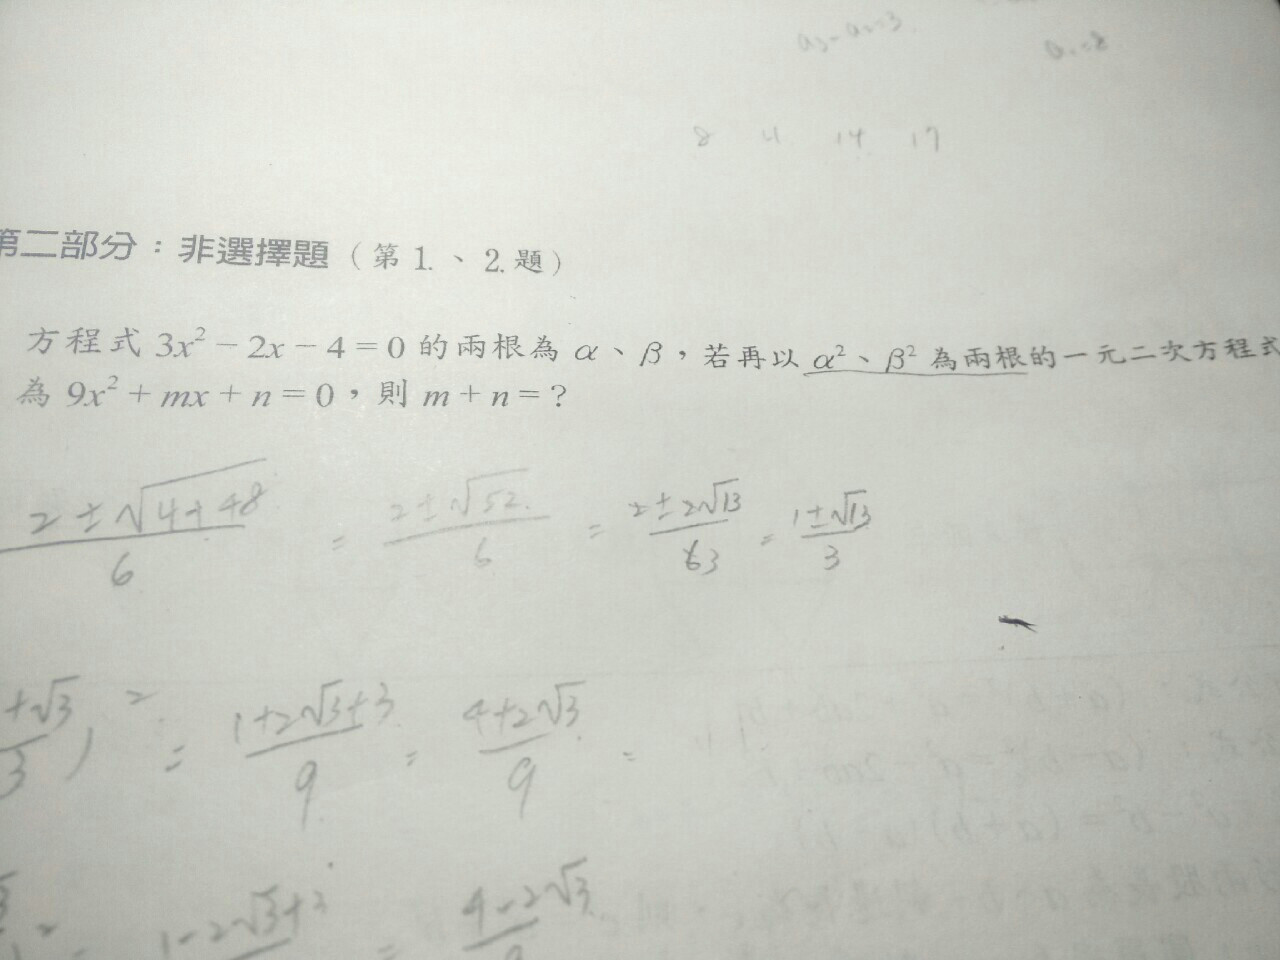 a₃-a₂=3
a₁=8
8 11 14 17
第二部分：非選擇題（第1.、2.題）
方程式 3x² − 2x − 4 = 0 的兩根為 α、β，若再以 α²、β² 為兩根的一元二次方程式
為 9x² + mx + n = 0，則 m + n = ?
2±√4+48 / 6 = 2±√52 / 6 = 2±2√13 / 63 = 1±√13 / 3
+√3 / 3 )² = 1+2√3+3 / 9 = 4+2√3 / 9 =
² = 1-2√3+3 = 4-2√3